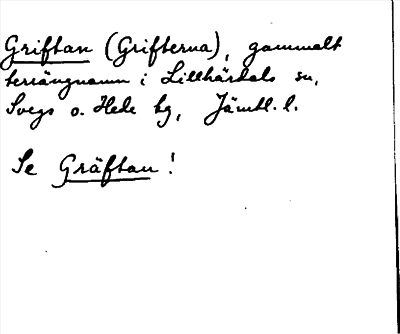 Griftan (Grifterna), gammalt
terrängnamn i Lillhärdals sn,
Svegs o. Hede tg, Jämtl. l.
Se Gräftan!